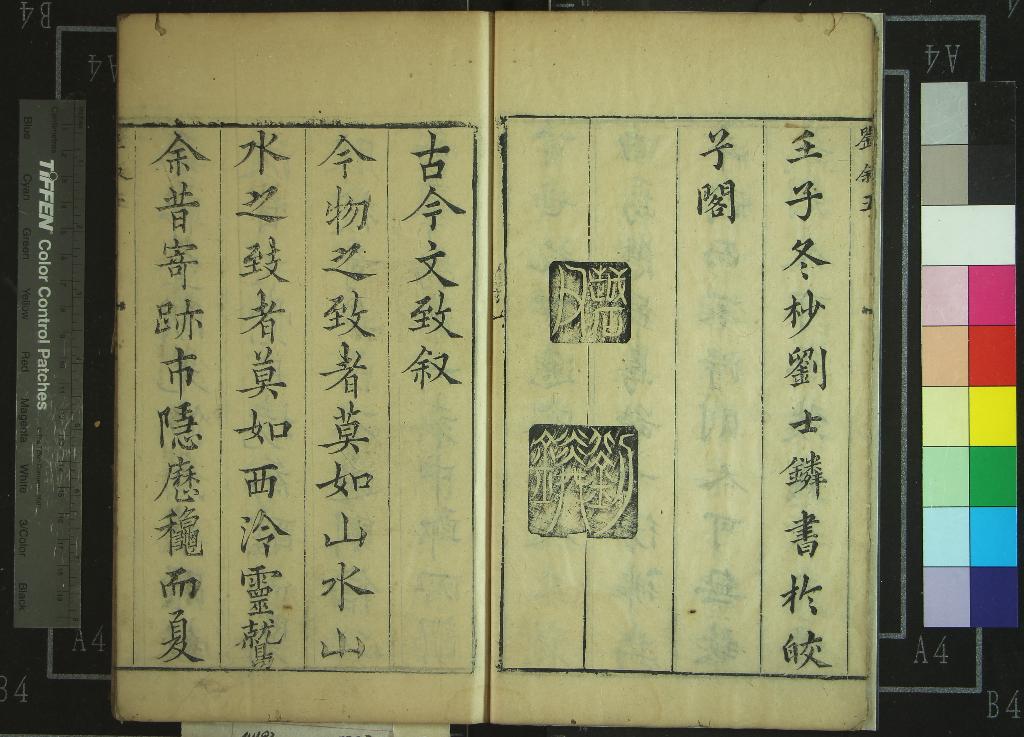 劉叙五
壬子冬杪劉士鏻書於皎
孑閣
古今文致叙
今物之致者莫如山水山
水之致者莫如西泠靈鷲
余昔寄跡市隱蘑龝而夏
B4
A4
A4
B4
A4
A4
B4
TIFFEN Color Control Patches
Blue Cyan Green Yellow Red Magenta White 3/Color Black